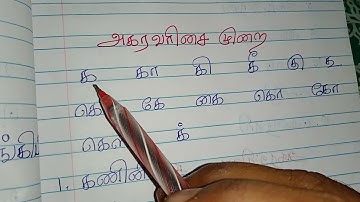 அகரவரிசை முறை
க கா கி கீ கு கூ
கெ கே கை கொ கோ
கௌ க்
1. கணினி